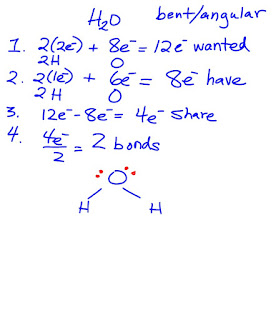 H₂O bent/angular
1. 2(2e⁻) + 8e⁻ = 12e⁻ wanted
2H O
2. 2(1e⁻) + 6e⁻ = 8e⁻ have
2H O
3. 12e⁻ - 8e⁻ = 4e⁻ share
4. 4e⁻/2 = 2 bonds
O
H H